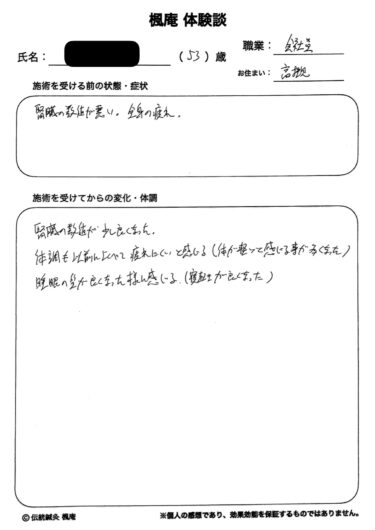 楓庵 体験談
氏名： （53）歳
職業： 会社員
お住まい： 高槻
施術を受ける前の状態・症状
腎臓の数値が悪い。全身の疲れ。
施術を受けてからの変化・体調
腎臓の数値が少し良くなった。
体調も以前にくらべて疲れにくいと感じる（体が軽いと感じる事が多くなった）
睡眠の質が良くなった様に感じる（寝起きが良くなった）
© 伝統鍼灸 楓庵
※個人の感想であり、効果効能を保証するものではありません。